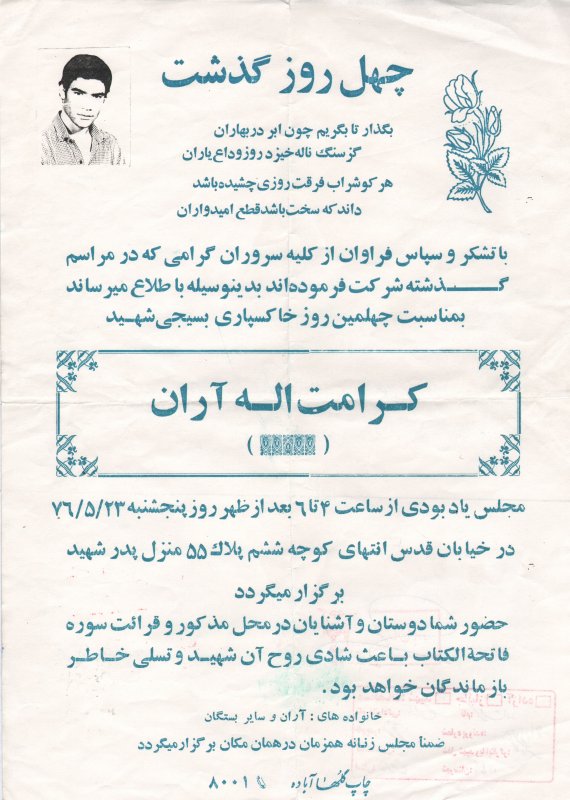 چهل روز گذشت
بگذار تا بگریم چون ابر در بهاران
گز سنگ ناله خیزد روز وداع یاران
هر کو شراب فرقت روزی چشیده باشد
داند که سخت باشد قطع امیدواران
با تشکر و سپاس فراوان از کلیه سروران گرامی که در مراسم
گذشته شرکت فرموده‌اند بدینوسیله با طلاع میرساند
بمناسبت چهلمین روز خاکسپاری بسیجی شهید
کرامت اله آران
مجلس یادبودی از ساعت ۴ تا ۶ بعد از ظهر روز پنجشنبه ۷۶/۵/۲۳
در خیابان قدس انتهای کوچه ششم پلاك ۵۵ منزل پدر شهید
برگزار میگردد
حضور شما دوستان و آشنایان در محل مذکور و قرائت سوره
فاتحة الکتاب باعث شادی روح آن شهید و تسلی خاطر
بازماندگان خواهد بود.
خانواده های: آران و سایر بستگان
ضمناً مجلس زنانه همزمان در همان مکان برگزار میگردد
چاپ گلمهٔا آباده ۸۰۰۱